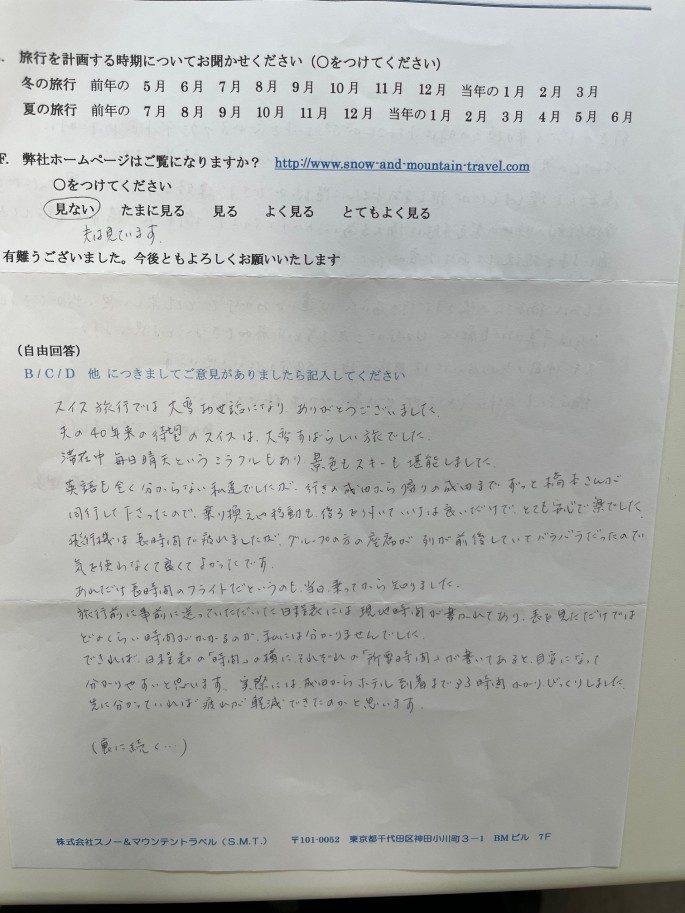 . 旅行を計画する時期についてお聞かせください（〇をつけてください）
冬の旅行 前年の 5月 6月 7月 8月 9月 10月 11月 12月 当年の1月 2月 3月
夏の旅行 前年の 7月 8月 9月 10月 11月 12月 当年の1月 2月 3月 4月 5月 6月
F. 弊社ホームページはご覧になりますか？ http://www.snow-and-mountain-travel.com
〇をつけてください
見ない たまに見る 見る よく見る とてもよく見る
夫は見ています.
有難うございました。今後ともよろしくお願いいたします
（自由回答）
B / C / D 他 につきましてご意見がありましたら記入してください
スイス旅行では大変お世話になり、ありがとうございました.
夫の40年来の待望のスイスは、大変すばらしい旅でした.
滞在中毎日晴天というミラクルもあり、景色もスキーも堪能しました.
英語も全く分からない私達でしたが、行きの成田から帰りの成田まで、ずっと橋本さんが
同行して下さったので、乗り換えや移動も、後ろを付いていけば良いだけで、とても安心で楽でした.
飛行機は長時間で疲れましたが、グループの方の座席が、列が前後していてバラバラだったので
気を使わなくて良くてよかったです.
あれだけ長時間のフライトだというのも、当日、乗ってから知りました.
旅行前に事前に送っていただいた日程表には現地時間が書かれており、表を見ただけでは
どのくらい時間がかかるのか、私には分かりませんでした.
できれば、日程表の「時間」の横に、それぞれの「所要時間」が書いてあると、目安になって
分かりやすいと思います. 実際には成田からホテル到着まで23時間かかり、びっくりしました.
先に分かっていれば疲れが軽減できたのかと思います.
(裏に続く…)
株式会社スノー＆マウンテントラベル（S.M.T.） 〒101-0052 東京都千代田区神田小川町３－1 BMビル 7F